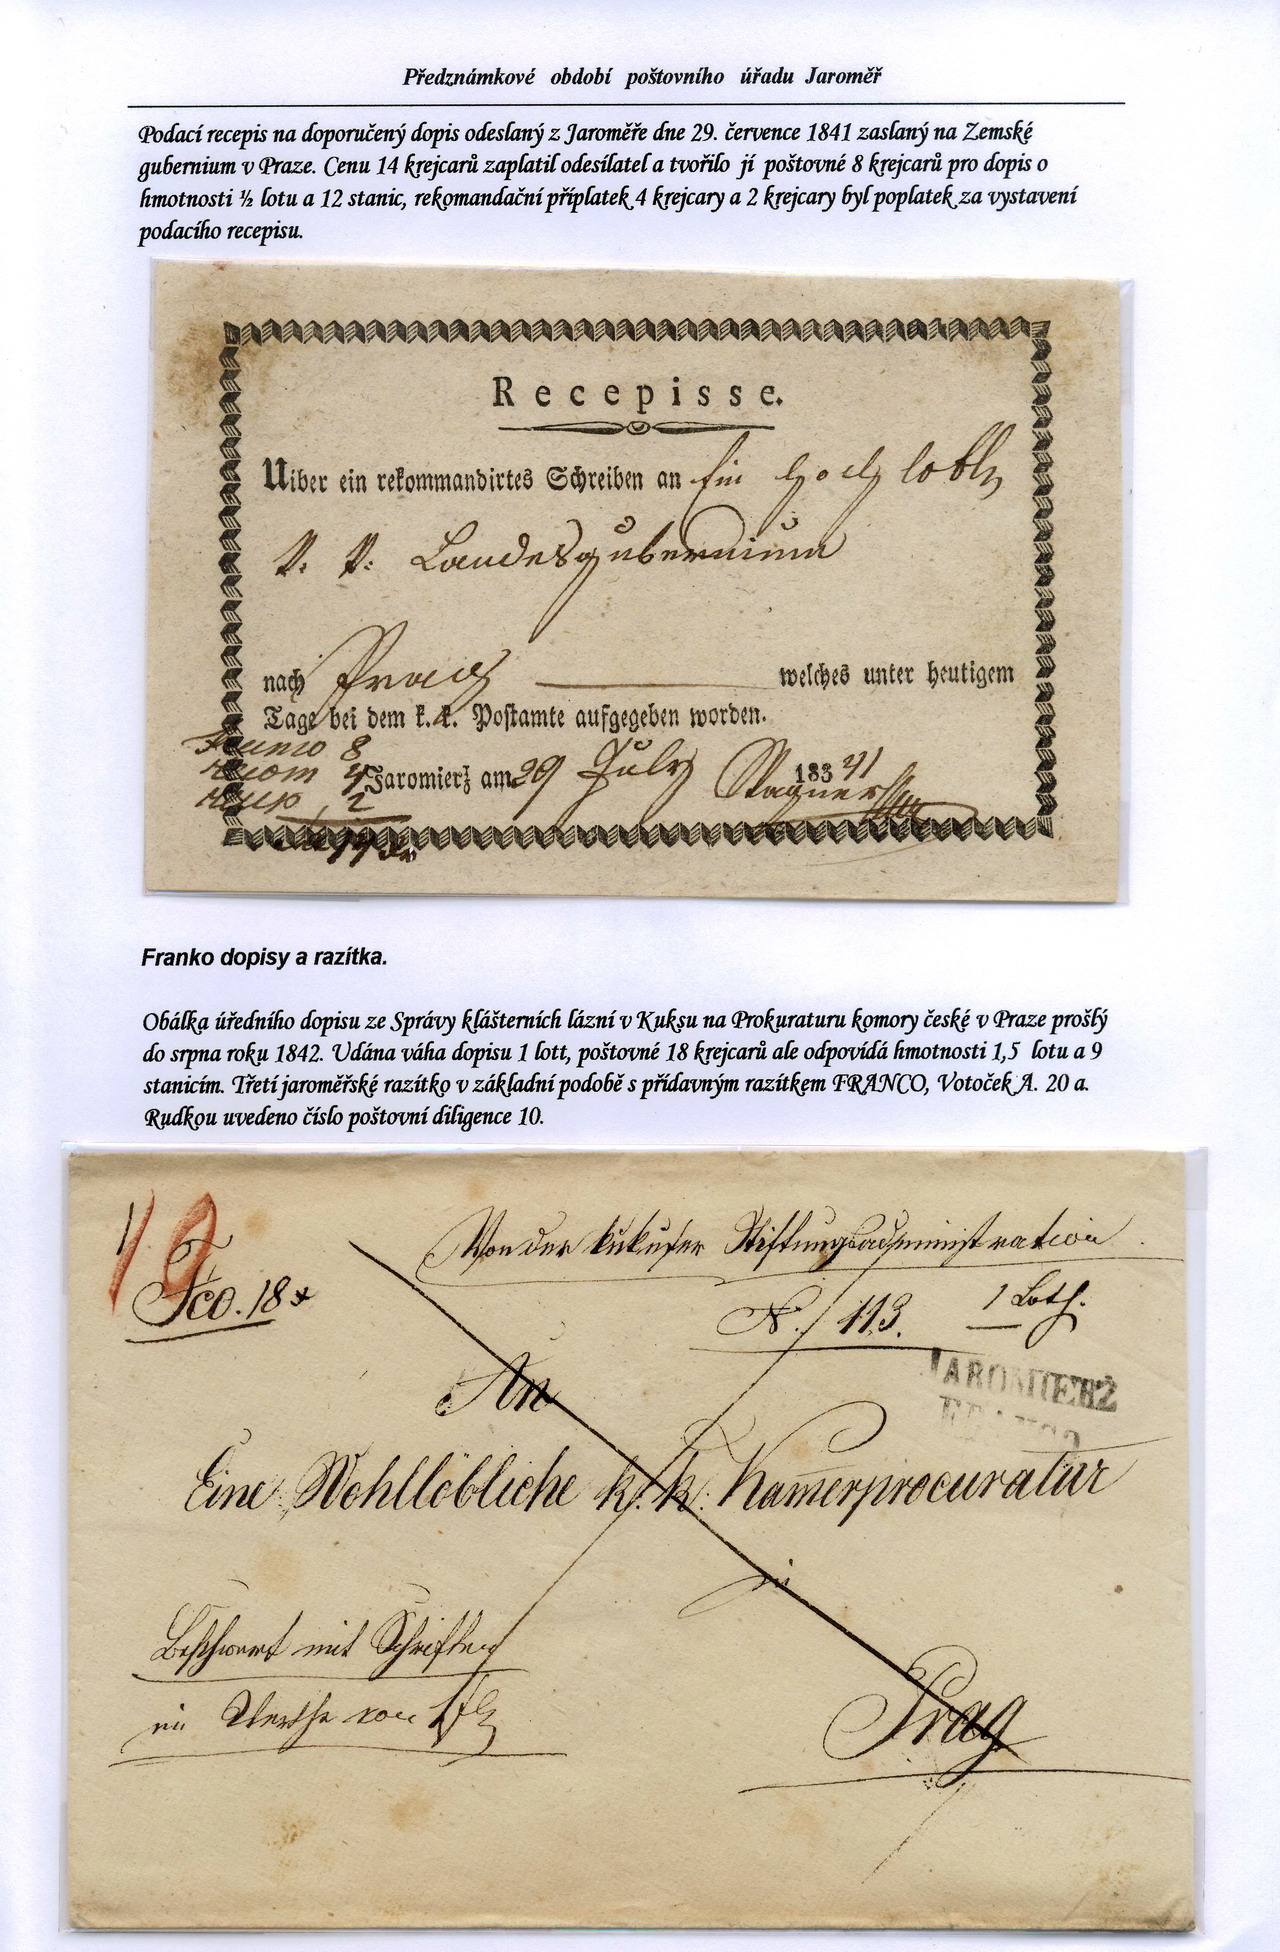 Předznámkové období poštovního úřadu Jaroměř
Podací recepis na doporučený dopis odeslaný z Jaroměře dne 29. července 1841 zaslaný na Zemské
gubernium v Praze. Cenu 14 krejcarů zaplatil odesílatel a tvořilo jí poštovné 8 krejcarů pro dopis o
hmotnosti ½ lotu a 12 stanic, rekomandační příplatek 4 krejcary a 2 krejcary byl poplatek za vystavení
podacího recepisu.
Recepisse.
Uiber ein rekommandirtes Schreiben an Ein hochlobl
k. k. Landesgubernium
nach Prag welches unter heutigem
Tage bei dem k. k. Postamte aufgegeben worden.
Franco 8
recom 4 Jaromierz am 29 July 183 41
recep 2 Wagner
14 xr
Franko dopisy a razítka.
Obálka úředního dopisu ze Správy klášterních lázní v Kuksu na Prokuraturu komory české v Praze prošlý
do srpna roku 1842. Udána váha dopisu 1 lott, poštovné 18 krejcarů ale odpovídá hmotnosti 1,5 lotu a 9
stanicím. Třetí jaroměřské razítko v základní podobě s přídavným razítkem FRANCO, Votoček A. 20 a.
Rudkou uvedeno číslo poštovní diligence 10.
10
Von der kukuser Stiftungsadministration
Fco. 18 x
N. 113. 1 Loth.
JAROMIERŽ
FRANCO
An
Eine Wohllöbliche k. k. Kam̅erprocuratur
in
Beschwert mit Schriften
im Werthe von 1 f
Prag